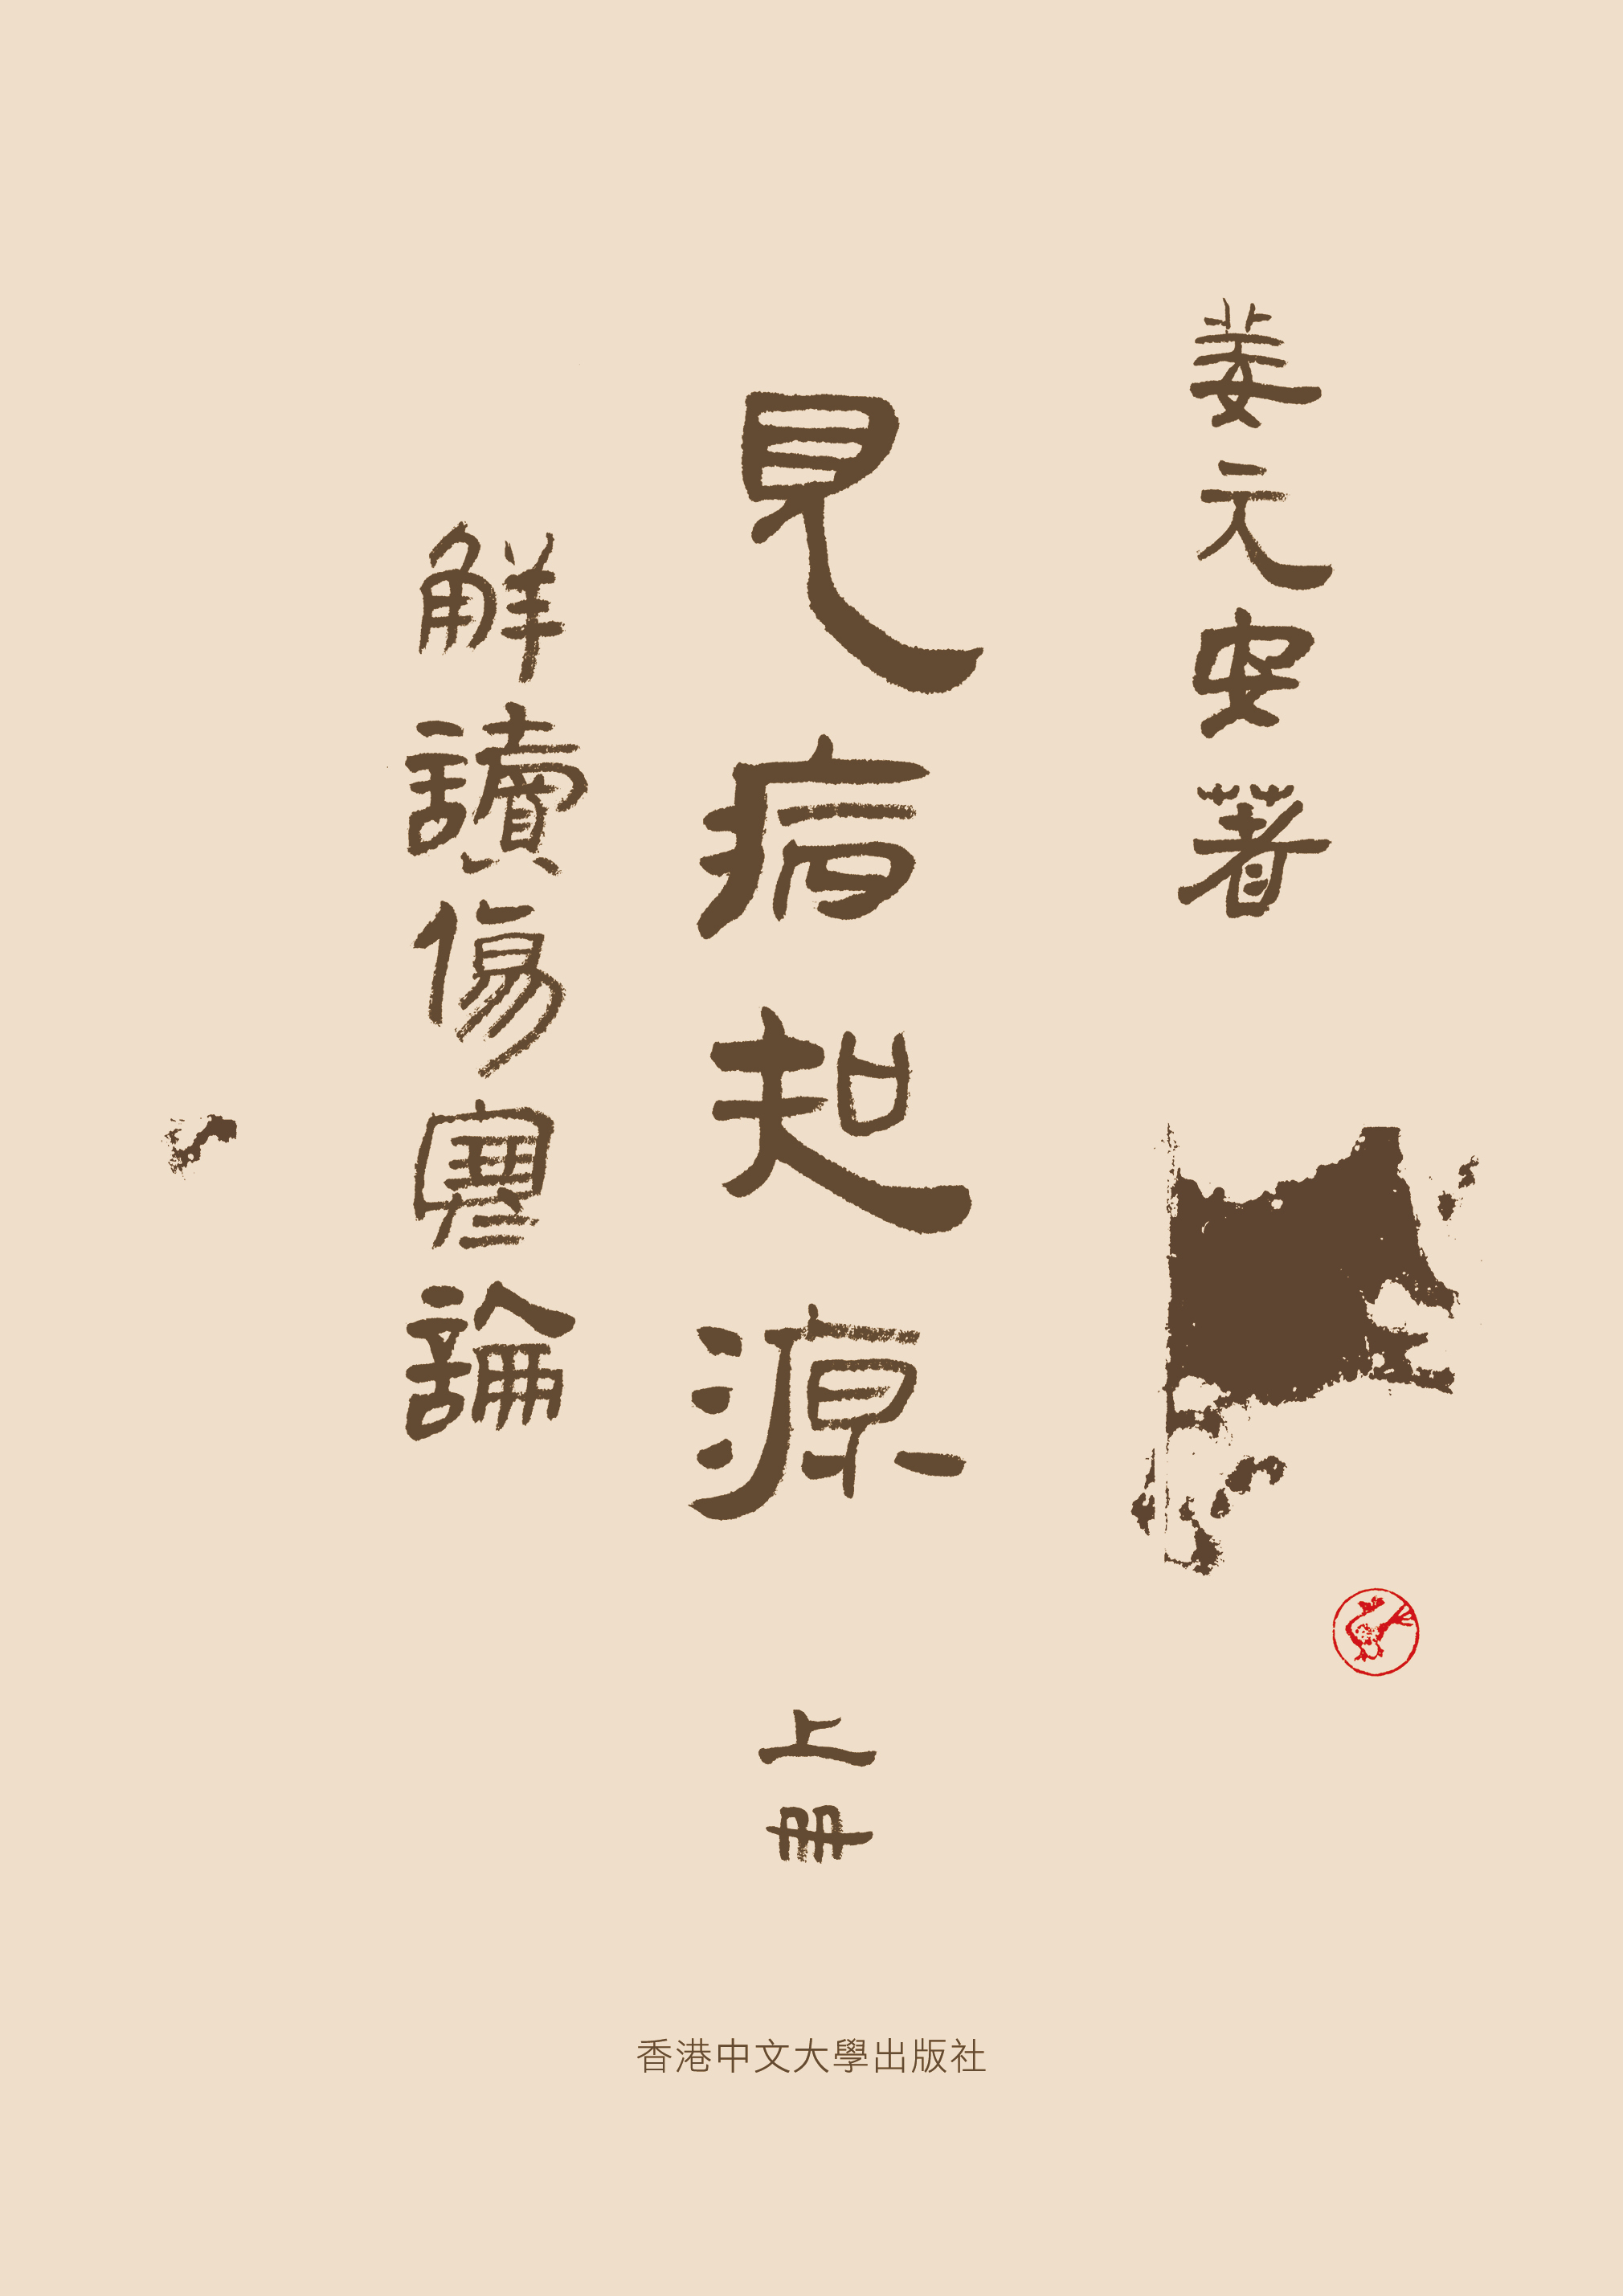 姜元安 著
見病知源
解讀傷寒論
上冊
香港中文大學出版社